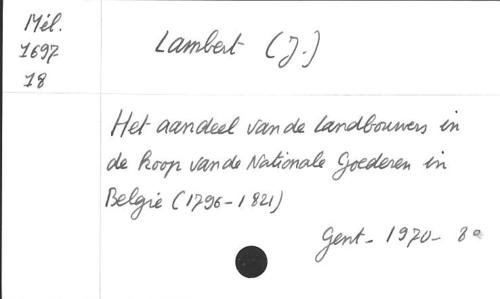 Mél.
1697
18
Lambert (J.)
Het aandeel van de Landbouwers in
de koop van de Nationale Goederen in
België (1796-1821)
Gent - 1970 - 8°